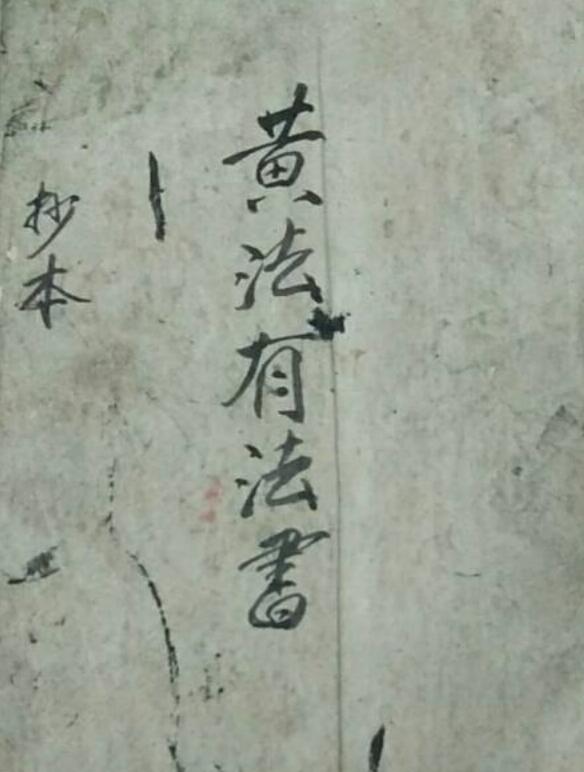 黄法有法書
抄本